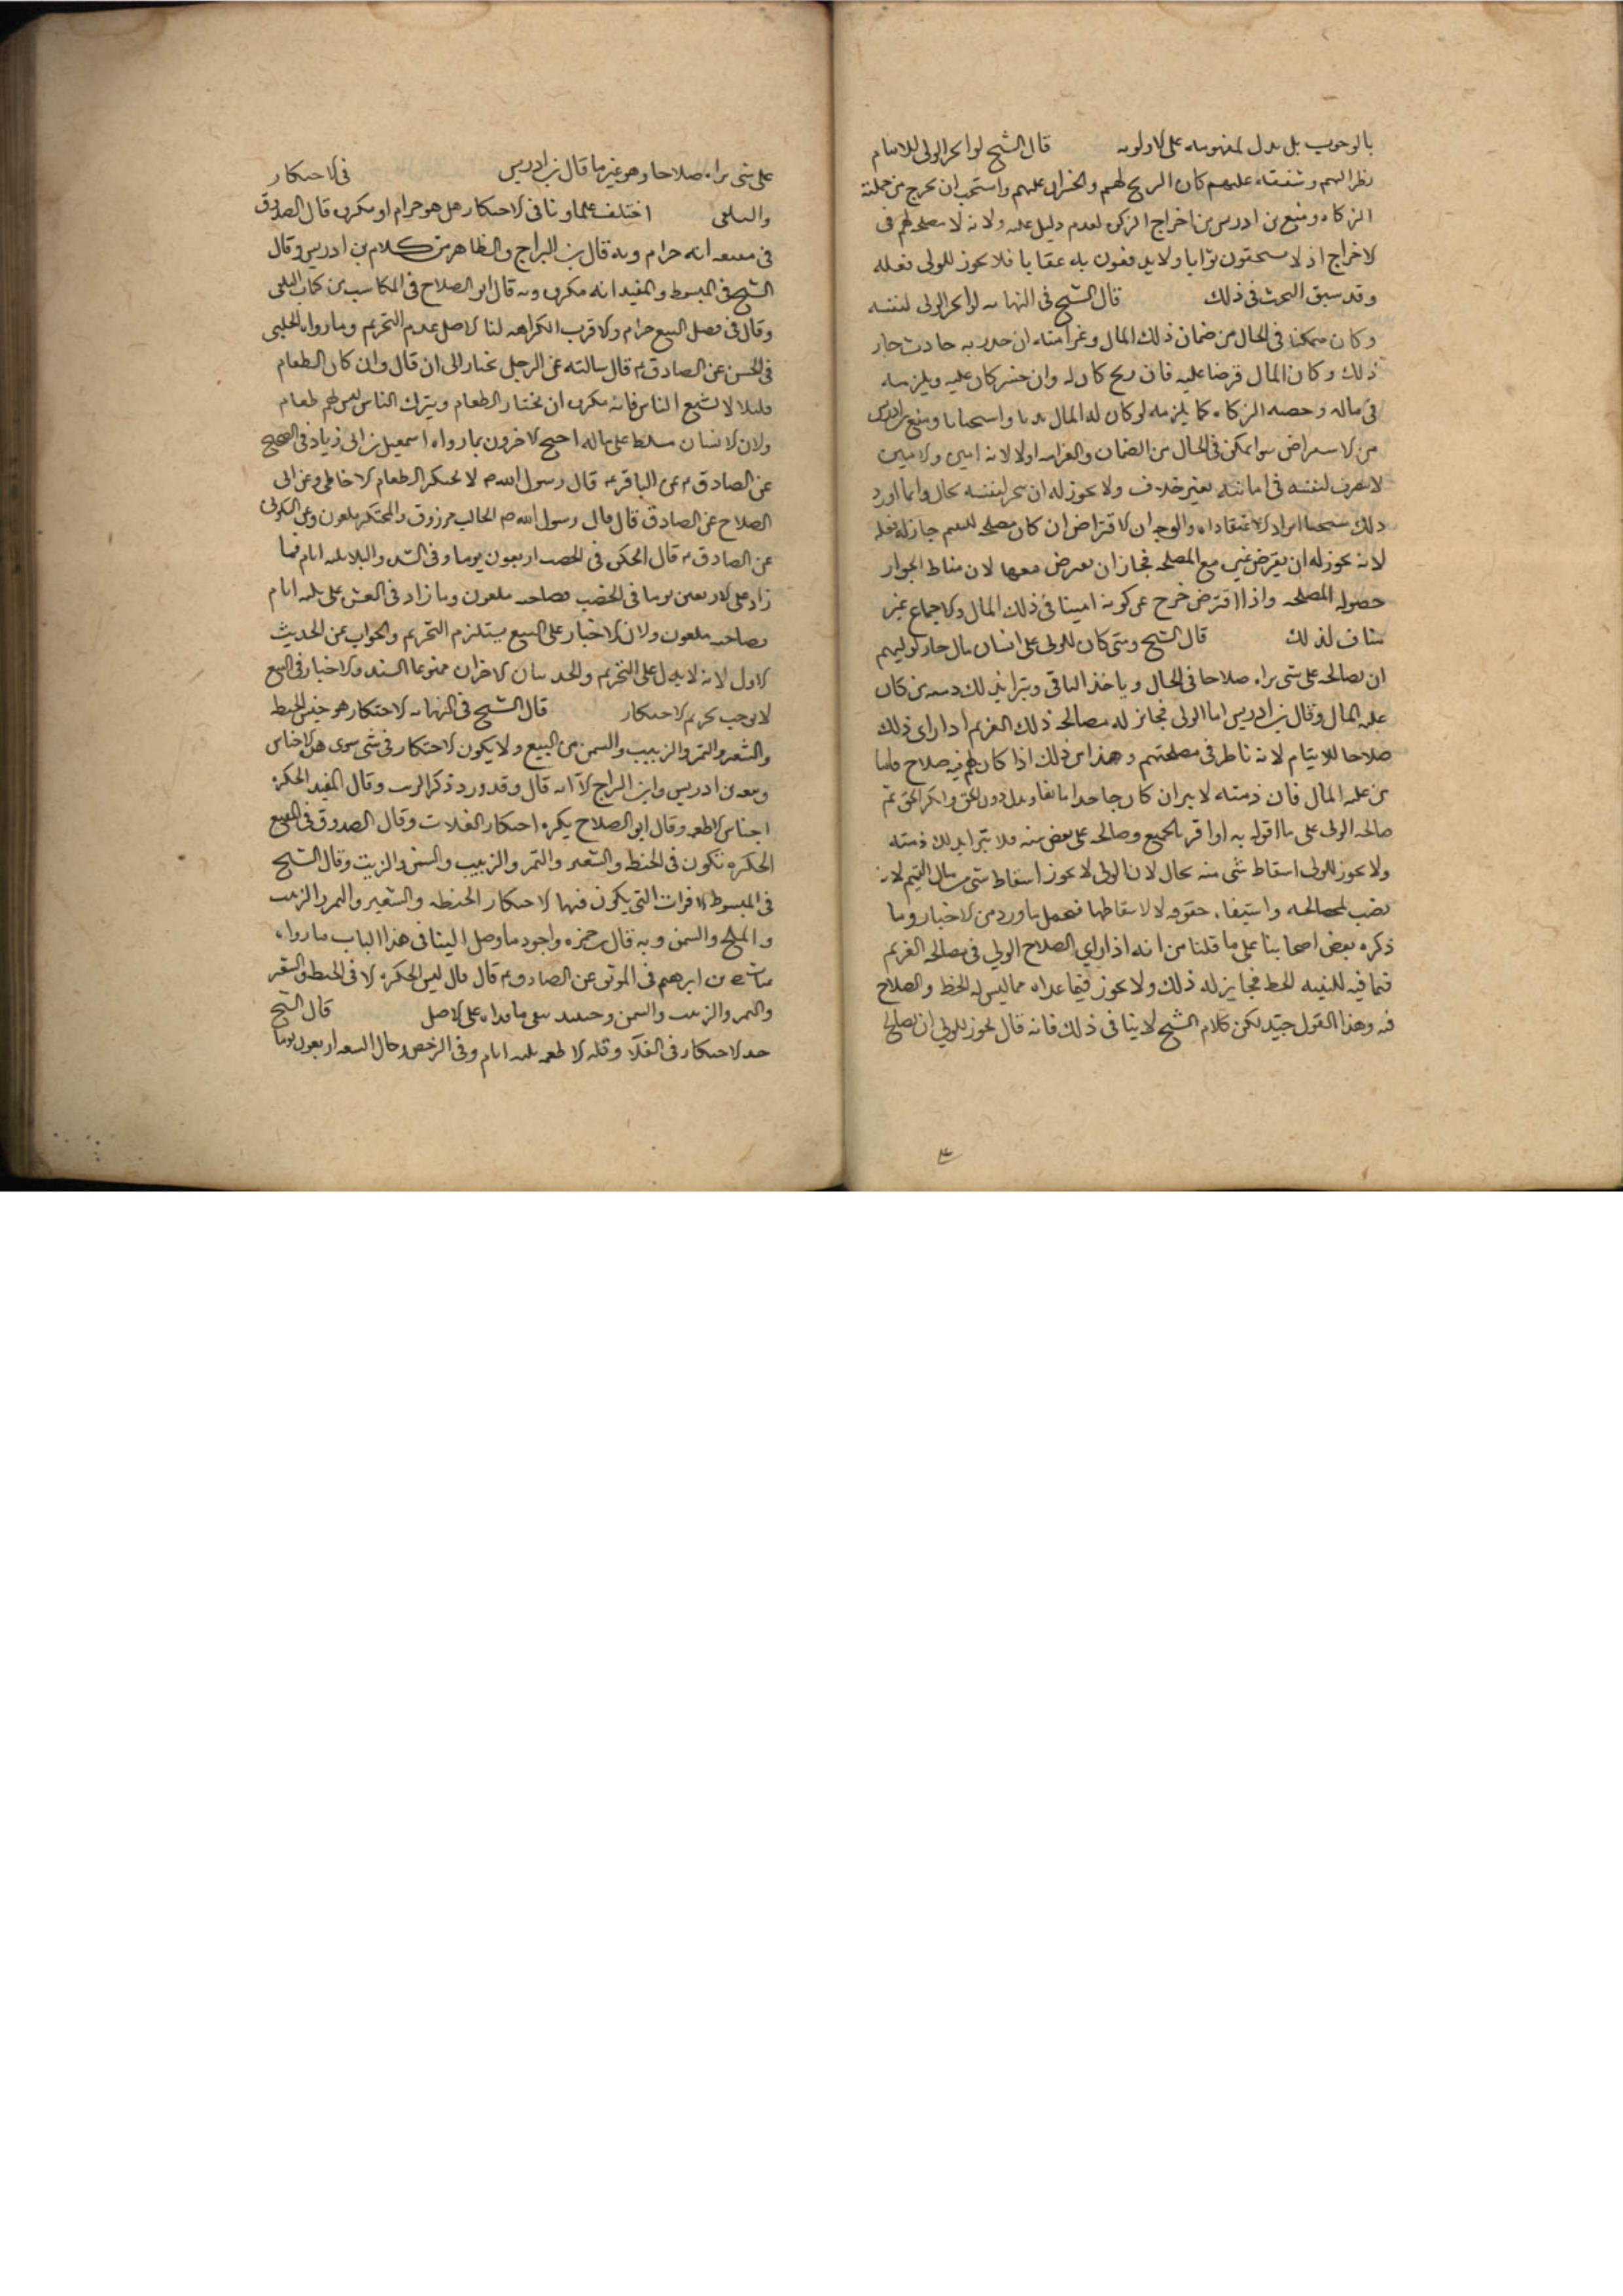 بالوجوب بل يدل بمفهومه على الاولوية قال الشيخ لو اتجر الولى للايتام
نظرا لهم وشفقة عليهم كان الربح لهم والخسران عليهم واستحب ان يخرج من جملته
الزكاة ومنع بن ادريس من اخراج الزكوة لعدم دليل عليه ولانه لا مصلحة لهم فى
الاخراج اذ لا يستحقون ثوابا ولا يدفعون به عقابا فلا يجوز للولى فعله
وقد سبق البحث فى ذلك قال الشيخ فى النهاية لو اتجر الولى لنفسه
وكان متمكنا فى الحال من ضمان ذلك المال وغرامته ان حدث به حادث جاز
ذلك وكان المال قرضا عليه فان ربح كان له وان خسر كان عليه ويلزمه
فى ماله وحصه الزكاة كما يلزمه لو كان له المال ندبا واستحبابا ومنع بن ادريس
من الاستقراض سوا تمكن فى الحال من الضمان والغرامة اولا لانه امين والامين
لا يتصرف لنفسه فى امانته بغير خلاف ولا يجوز له ان يتجر لنفسه بحال وانما اورد
ذلك شيخنا ايرادا لا اعتقادا والوجه ان الاقتراض ان كان مصلحة لليتيم جاز له فعله
لانه يجوز له ان يقرض غيره مع المصلحة فجاز ان يقترض معها لان مناط الجواز
حصول المصلحة واذا اقترض خرج عن كونه امينا فى ذلك المال والاجماع غير
مناف لذلك قال الشيخ ومتى كان للولى على انسان مال جاز لوليهم
ان يصالحه على شى يراه صلاحا فى الحال وياخذ الباقى وتبرا بذلك ذمه من كان
عليه المال وقال بن ادريس اما الولى فجائز له مصالحة ذلك الغريم اذا راى ذلك
صلاحا للايتام لانه ناظر فى مصلحتهم وهذا من ذلك اذا كان لهم فيه صلاح فاما
من عليه المال فان ذمته لا تبرا ان كان جاحدا مانعا وبذل دون الحق وانكر الحق ثم
صالحه الولى على ما اقر له به او اقر بالجميع وصالحه على بعض منه فلا تبرا بذلك ذمته
ولا يجوز للولى اسقاط شى منه بحال لان الولى لا يجوز اسقاط شى من مال اليتيم لانه
نصب لمصالحه واستيفاء حقوقه لا لاسقاطها فيحمل ما ورد من الاخبار وما
ذكره بعض اصحابنا على ما قلنا من انه اذا راى الصلاح الولي فى مصالحة الغريم
فيما فيه لليتيم الحظ فجايز له ذلك ولا يجوز فيما عداه مما ليس له الحظ والصلاح
فيه وهذا القول جيد لكن كلام الشيخ لا ينافى ذلك فانه قال يجوز للولى ان يصالح
على شى يراه صلاحا وهو غير ما قال بن ادريس فى الاحتكار
والتلقى اختلف علماونا فى الاحتكار هل هو حرام او مكروه قال الصدوق
فى مقنعه انه حرام وبه قال بن البراج والظاهر من كلام بن ادريس وقال
الشيخ فى المبسوط والمفيد انه مكروه وبه قال ابو الصلاح فى المكاسب من كتاب الحلبى
وقال فى فصل البيع حرام والاقرب الكراهه لنا الاصل عدم التحريم وما رواه الحلبى
فى الحسن عن الصادق ع قال سالته عن الرجل يحتكر الى ان قال وان كان الطعام
قليلا لا يسع الناس فانه مكروه ان يحتكر الطعام ويترك الناس ليس لهم طعام
ولان الانسان مسلط على ماله احتج الاخرون بما رواه اسمعيل بن ابى زياد فى الصحيح
عن الصادق ع عن الباقر ع قال رسول الله ص لا يحتكر الطعام الا خاطى وعن ابى
الصلاح عن الصادق قال قال رسول الله ص الجالب مرزوق والمحتكر ملعون وعن السكونى
عن الصادق ع قال الحكره فى الخصب اربعون يوما وفى الشده والبلا ثلثه ايام فما
زاد على الاربعين يوما فى الخصب فصاحبه ملعون وما زاد فى العسر على ثلثه ايام
فصاحبه ملعون ولان الاجبار على البيع يستلزم التحريم والجواب عن الحديث
الاول لانه لا يدل على التحريم والحديثان الاخران ممنوعا السند والاجبار فى البيع
لا يوجب تحريم الاحتكار قال الشيخ فى النهاية الاحتكار هو حبس الحنطه
والشعير والتمر والزبيب والسمن من البيع ولا يكون الاحتكار فى شى سوى هذه الاجناس
وتبعه بن ادريس وابن البراج الا انه قال وقد ورد ذكر الزيت وقال المفيد الحكره
اجناس الاطعمه وقال ابو الصلاح يكره احتكار الغلات وقال الصدوق فى المقنع
الحكره تكون فى الحنطه والشعير والتمر والزبيب والسمن والزيت وقال الشيخ
فى المبسوط الاقوات التى يكون فيها الاحتكار الحنطه والشعير والتمر والزبيب
والملح والسمن وبه قال بن حمزه واجود ما وصل الينا فى هذا الباب ما رواه
غياث بن ابرهيم فى الموثق عن الصادق ع قال قال ليس الحكره الا فى الحنطه والشعير
والتمر والزبيب والسمن وحينئذ يبقى ما عداه على الاصل قال الشيخ
حد الاحتكار فى الغلا وقله الاطعمه ثلثه ايام وفى الرخص وحال السعه اربعون يوما